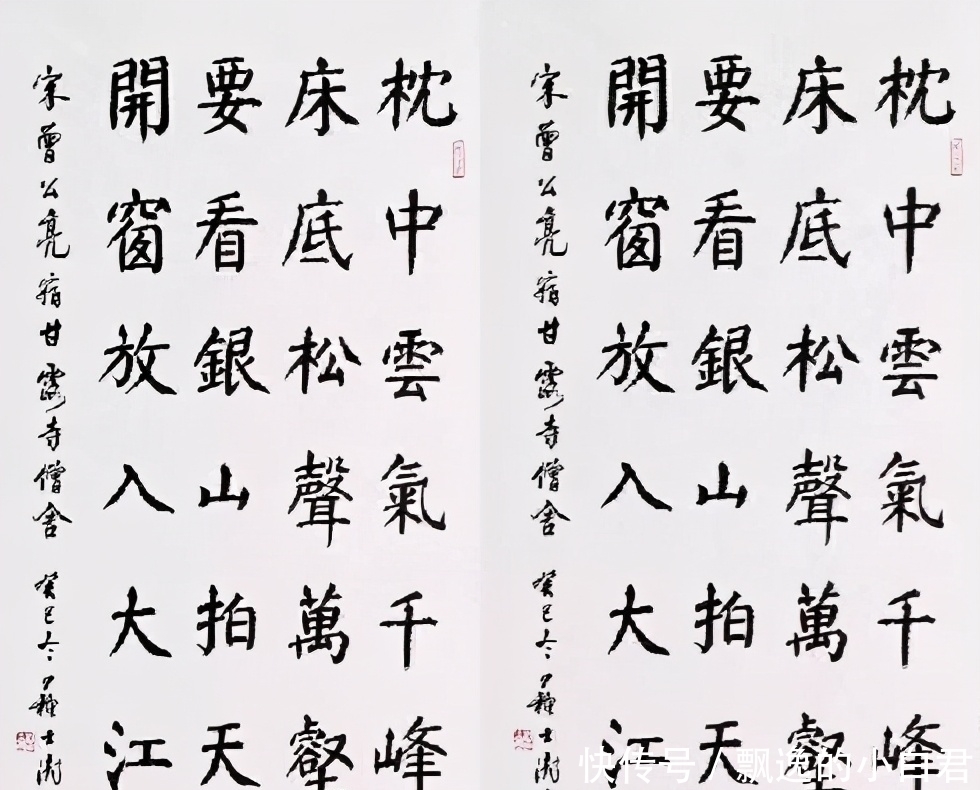 枕中雲氣千峰
床底松聲萬壑
要看銀山拍天
開窗放入大江
宋曾公亮宿甘露寺僧舍 癸巳冬 蘇士澍
枕中雲氣千峰
床底松聲萬壑
要看銀山拍天
開窗放入大江
宋曾公亮宿甘露寺僧舍 癸巳冬 蘇士澍
快传号 / 飘逸的小白君